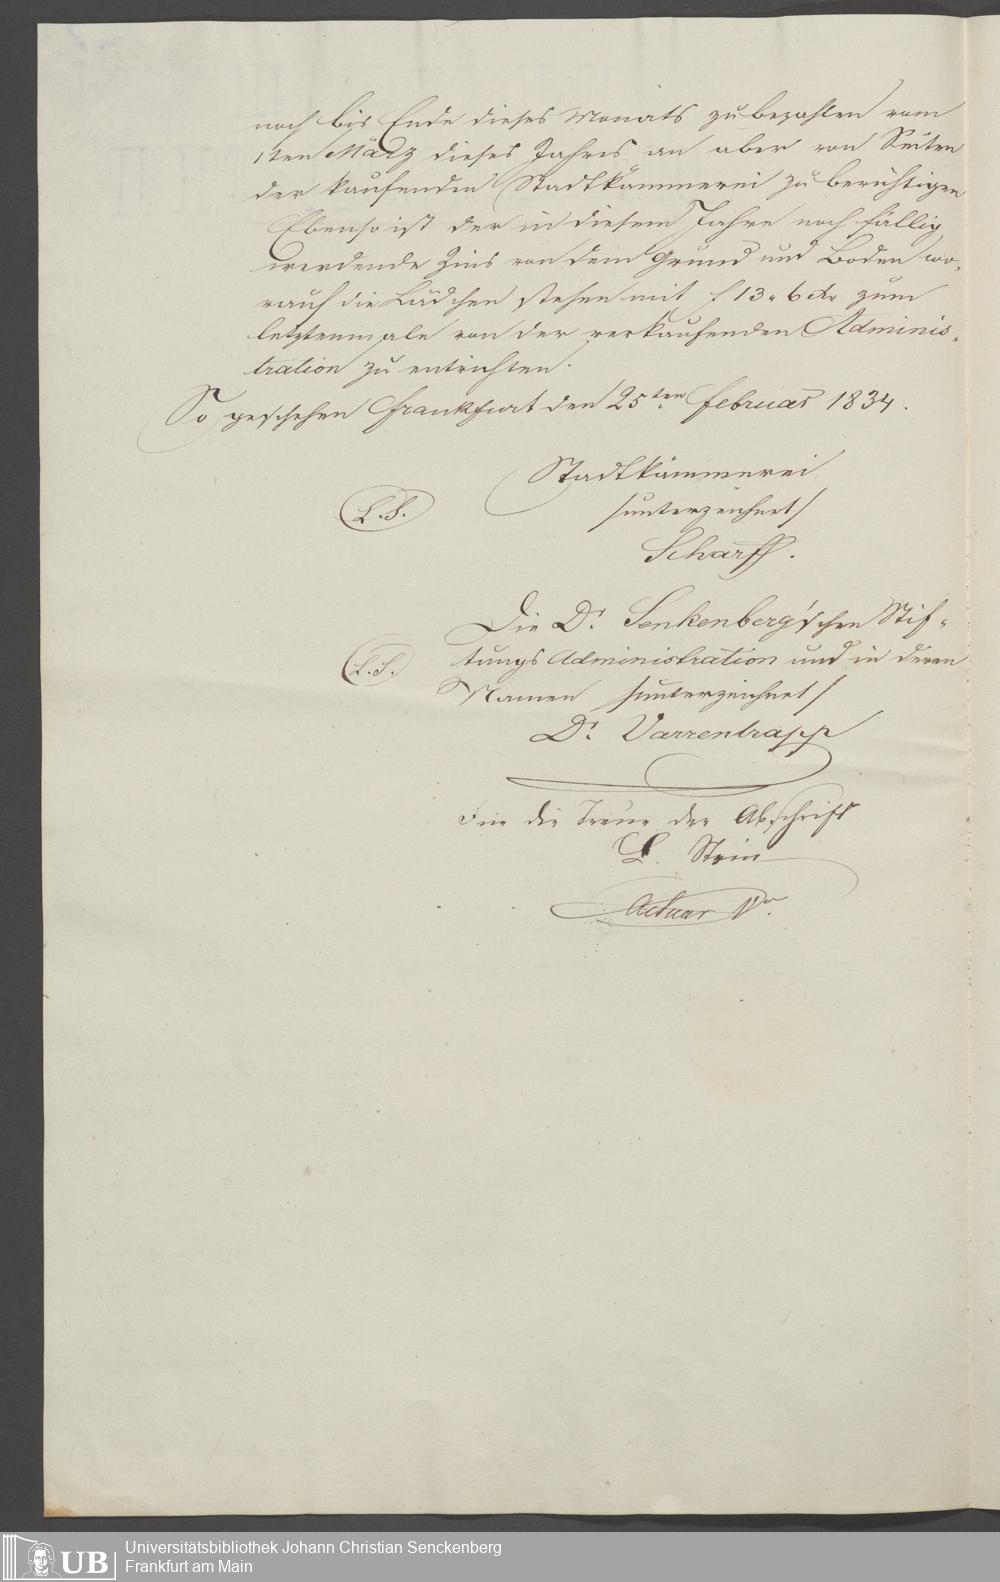 noch bis Ende dieses Monats zu bezahlen vom
1ten März dieses Jahres an aber von Seiten
der kaufenden Stadtkämmerei zu berichtigen
Ebenso ist der in diesem Jahre noch fällig
werdende Zins von dem Grund und Boden wo-
rauf die Lädchen stehen mit f 13 „ 6 Xr zum
letztenmale von der verkaufenden Adminis-
tration zu entrichten.
So geschehen Frankfurt den 25ten Februar 1834.
Stadtkämmerei
L.S. /unterzeichnet/
Scharff.
Die Dr. Senkenberg'schen Stif-
L.S. tungs Administration und in deren
Namen /unterzeichnet/
Dr. Varrentrapp
Für die Treue der Abschrift
L. Stein
Actuar
UB Universitätsbibliothek Johann Christian Senckenberg
Frankfurt am Main